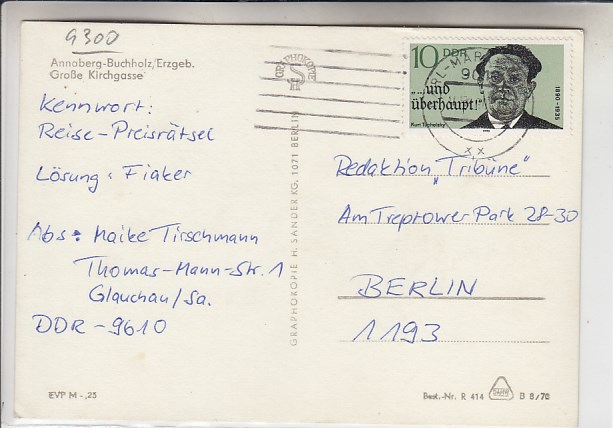 9300
Annaberg-Buchholz/Erzgeb.
Große Kirchgasse
Kennwort:
Reise-Preisrätsel
Lösung: Fiaker
Abs: Maike Tirschmann
Thomas-Mann-Str. 1
Glauchau/Sa.
DDR-9610
EVP M -,25
GRAPHOKOPIE H. SANDER KG, 1071 BERLIN
GRAPHOKOPIE
10 DDR
"...und
überhaupt!"
Kurt Tucholsky
1890-1935
RL-MAR
90
xx
Redaktion „Tribüne"
Am Treptower Park 28-30
BERLIN
1193
Best.-Nr. R 414
B 8/70